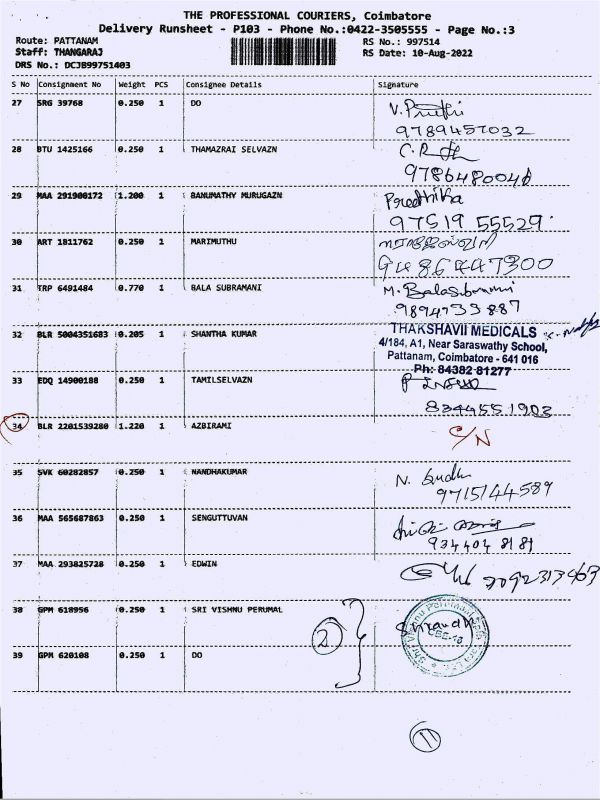 THE PROFESSIONAL COURIERS, Coimbatore
Delivery Runsheet - P103 - Phone No.:0422-3505555 - Page No.:3
Route: PATTANAM
RS No.: 997514
Staff: THANGARAJ
RS Date: 10-Aug-2022
DRS No.: DCJB99751403
S No Consignment No Weight PCS Consignee Details Signature
27 SRG 39768 0.250 1 DO
9789457032
28 BTU 1425166 0.250 1 THAMAZRAI SELVAZN
9786480046
29 MAA 291900172 1.200 1 BANUMATHY MURUGAZN Preethika
97519 55529
30 ART 1811762 0.250 1 MARIMUTHU
9486447300
31 TRP 6491484 0.770 1 BALA SUBRAMANI M. Balasubramani
9894733887
32 BLR 5004351683 0.205 1 SHANTHA KUMAR THAKSHAVII MEDICALS
4/184, A1, Near Saraswathy School,
Pattanam, Coimbatore - 641 016
Ph: 84382 81277
33 EDQ 14900188 0.250 1 TAMILSELVAZN
8344551903
34 BLR 2201539280 1.220 1 AZBIRAMI C/N
35 SVK 60282857 0.250 1 NANDHAKUMAR N. Sudha
9715144589
36 MAA 565687863 0.250 1 SENGUTTUVAN
934404 8181
37 MAA 293825728 0.250 1 EDWIN 9092313463
38 GPM 618956 0.250 1 SRI VISHNU PERUMAL
2
39 GPM 620108 0.250 1 DO
11